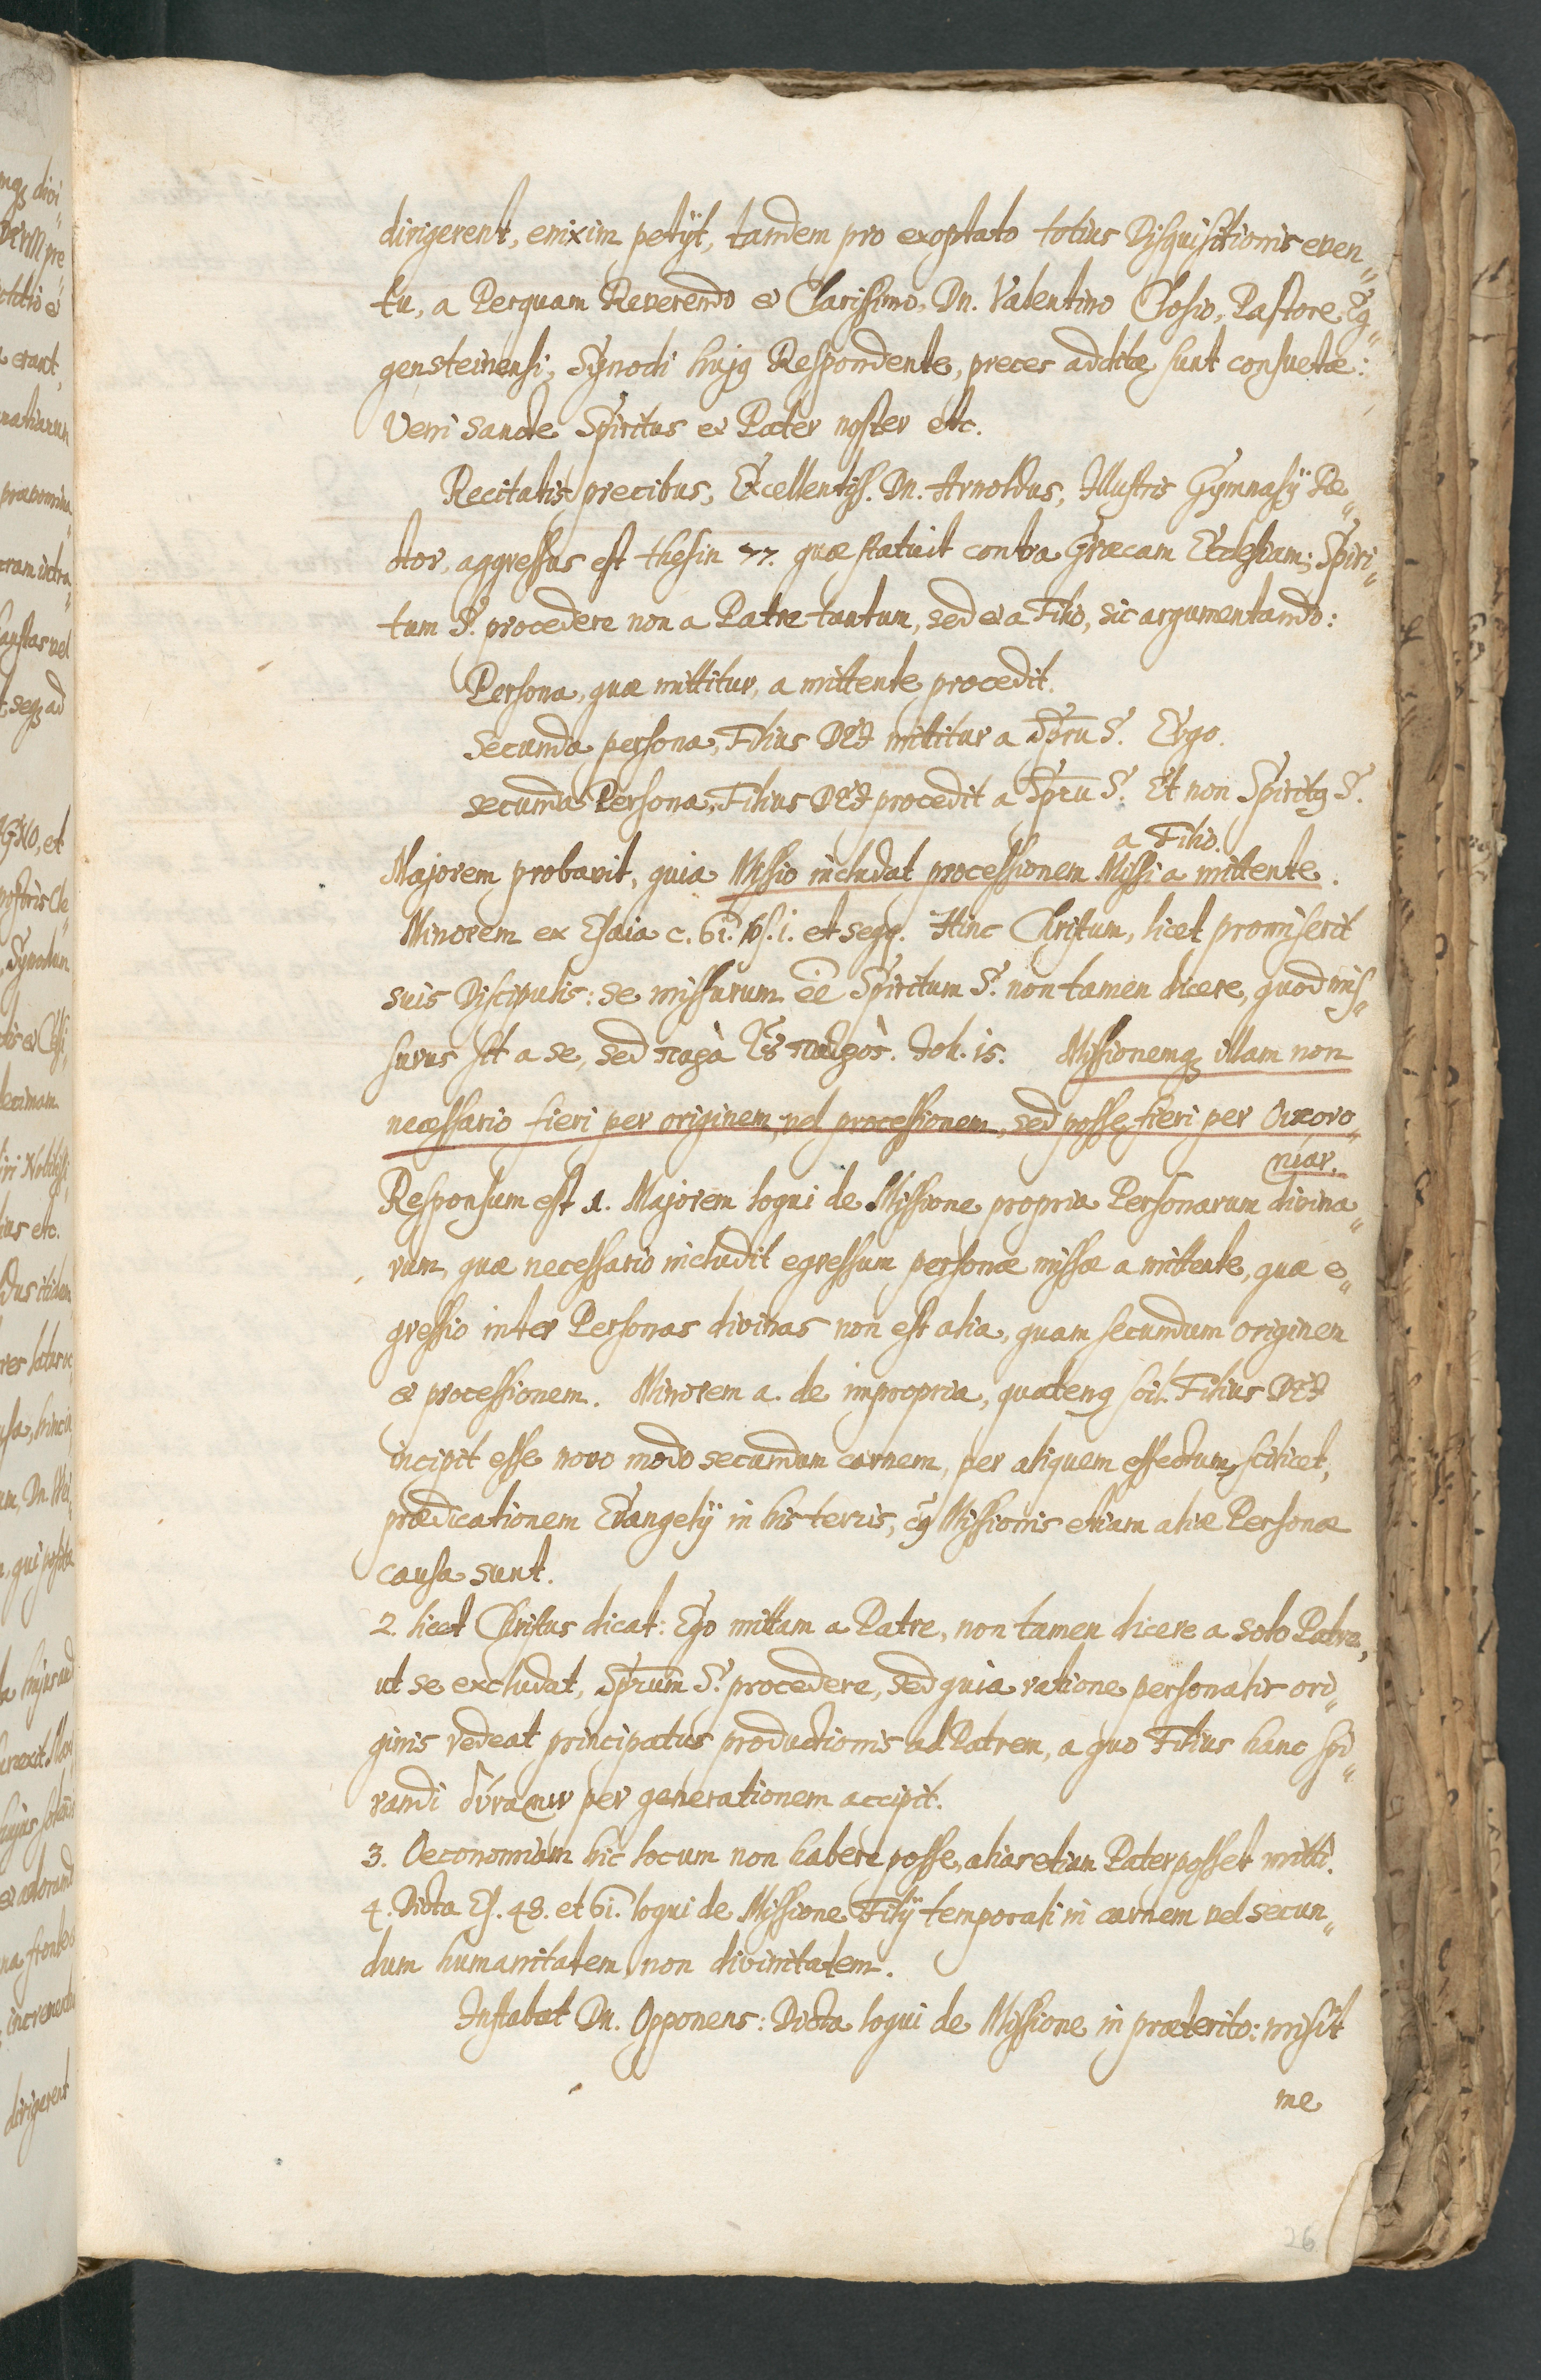 dirigerent, enixim petijt, tandem pro exoptato totius Disquisitionis even„
tu, a Perquam Reverendo et Clarissimo, Dn. Valentino Closio, Pastore Eg„
gensteinensi, Synodi hujg Respondente, preces additæ sunt consuetæ:
Veni Sancte Spiritus et Pater noster etc.
Recitatis precibus, Excellentiss. Dn. Arnoldus, Illustris Gymnasij Re„
ctor, aggressus est thesin 77. quæ statuit contra Græcam Ecclesiam; Spiri„
tum S. procedere non a Patre tantum, sed et a Filio, sic argumentando:
Persona, quæ mittitur, a mittente procedit.
Secunda persona, Filius DEI mittitur a Spru S. Ergo.
secunda Persona, Filius DEI procedit a Spru S. Et non Spiritg S.
a Filio.
Majorem probavit, quia Missio includat processionem Missi a mittente.
Minorem ex Esaia c. 61. vs. 1. et seqq. Hinc Christum, licet promiserit
suis Discipulis: se missurum ee Spiritum S. non tamen dicere, quod mis„
surus sit a se, sed παρὰ τοῦ πατρὸς. Joh. 15. Missionemq illam non
necessario fieri per originem, vel processionem, sed posse fieri per Οικονο„
μιαν.
Responsum est 1. Majorem loqui de Missione propria Personarum divina„
rum, quæ necessario includit egressum personæ missæ a mittente, quæ e„
gressio inter Personas divinas non est alia, quam secundum originem
et processionem. Minorem a. de impropria, quateng scil. Filius DEI
incipit esse novo modo secundum carnem, per aliquem effectum, scilicet,
prædicationem Evangelij in his terris, cg Missionis etiam aliæ Personæ
causa sunt.
2. licet Christus dicat: Ego mittam a Patre, non tamen dicere a solo Patre,
ut se excludat, Sprum S. procedere, sed quia ratione personalis ori„
ginis redeat principatus productionis ad Patrem, a quo Filius hanc spi„
randi δύναμιν per generationem accipit.
3. Oeconomiam hic locum non habere posse, alias etiam Pater posset mitti.
4. Dicta Es. 48. et 61. loqui de Missione Filij temporali in carnem vel secun„
dum humanitatem, non divinitatem.
Instabat Dn. Opponens: Dicta loqui de Missione in præterito: misit
me
26